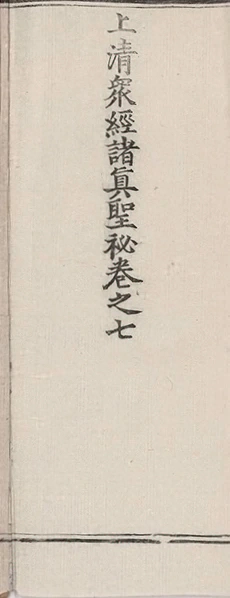 上清衆經諸眞聖祕卷之七